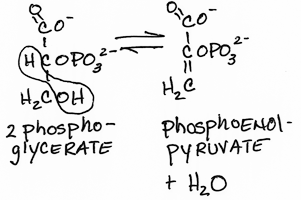 O
CO⁻
HCOPO₃²⁻
H₂COH
2 phospho-
glycerate
O
CO⁻
COPO₃²⁻
H₂C
phosphoENOL-
PYRUVATE
+ H₂O